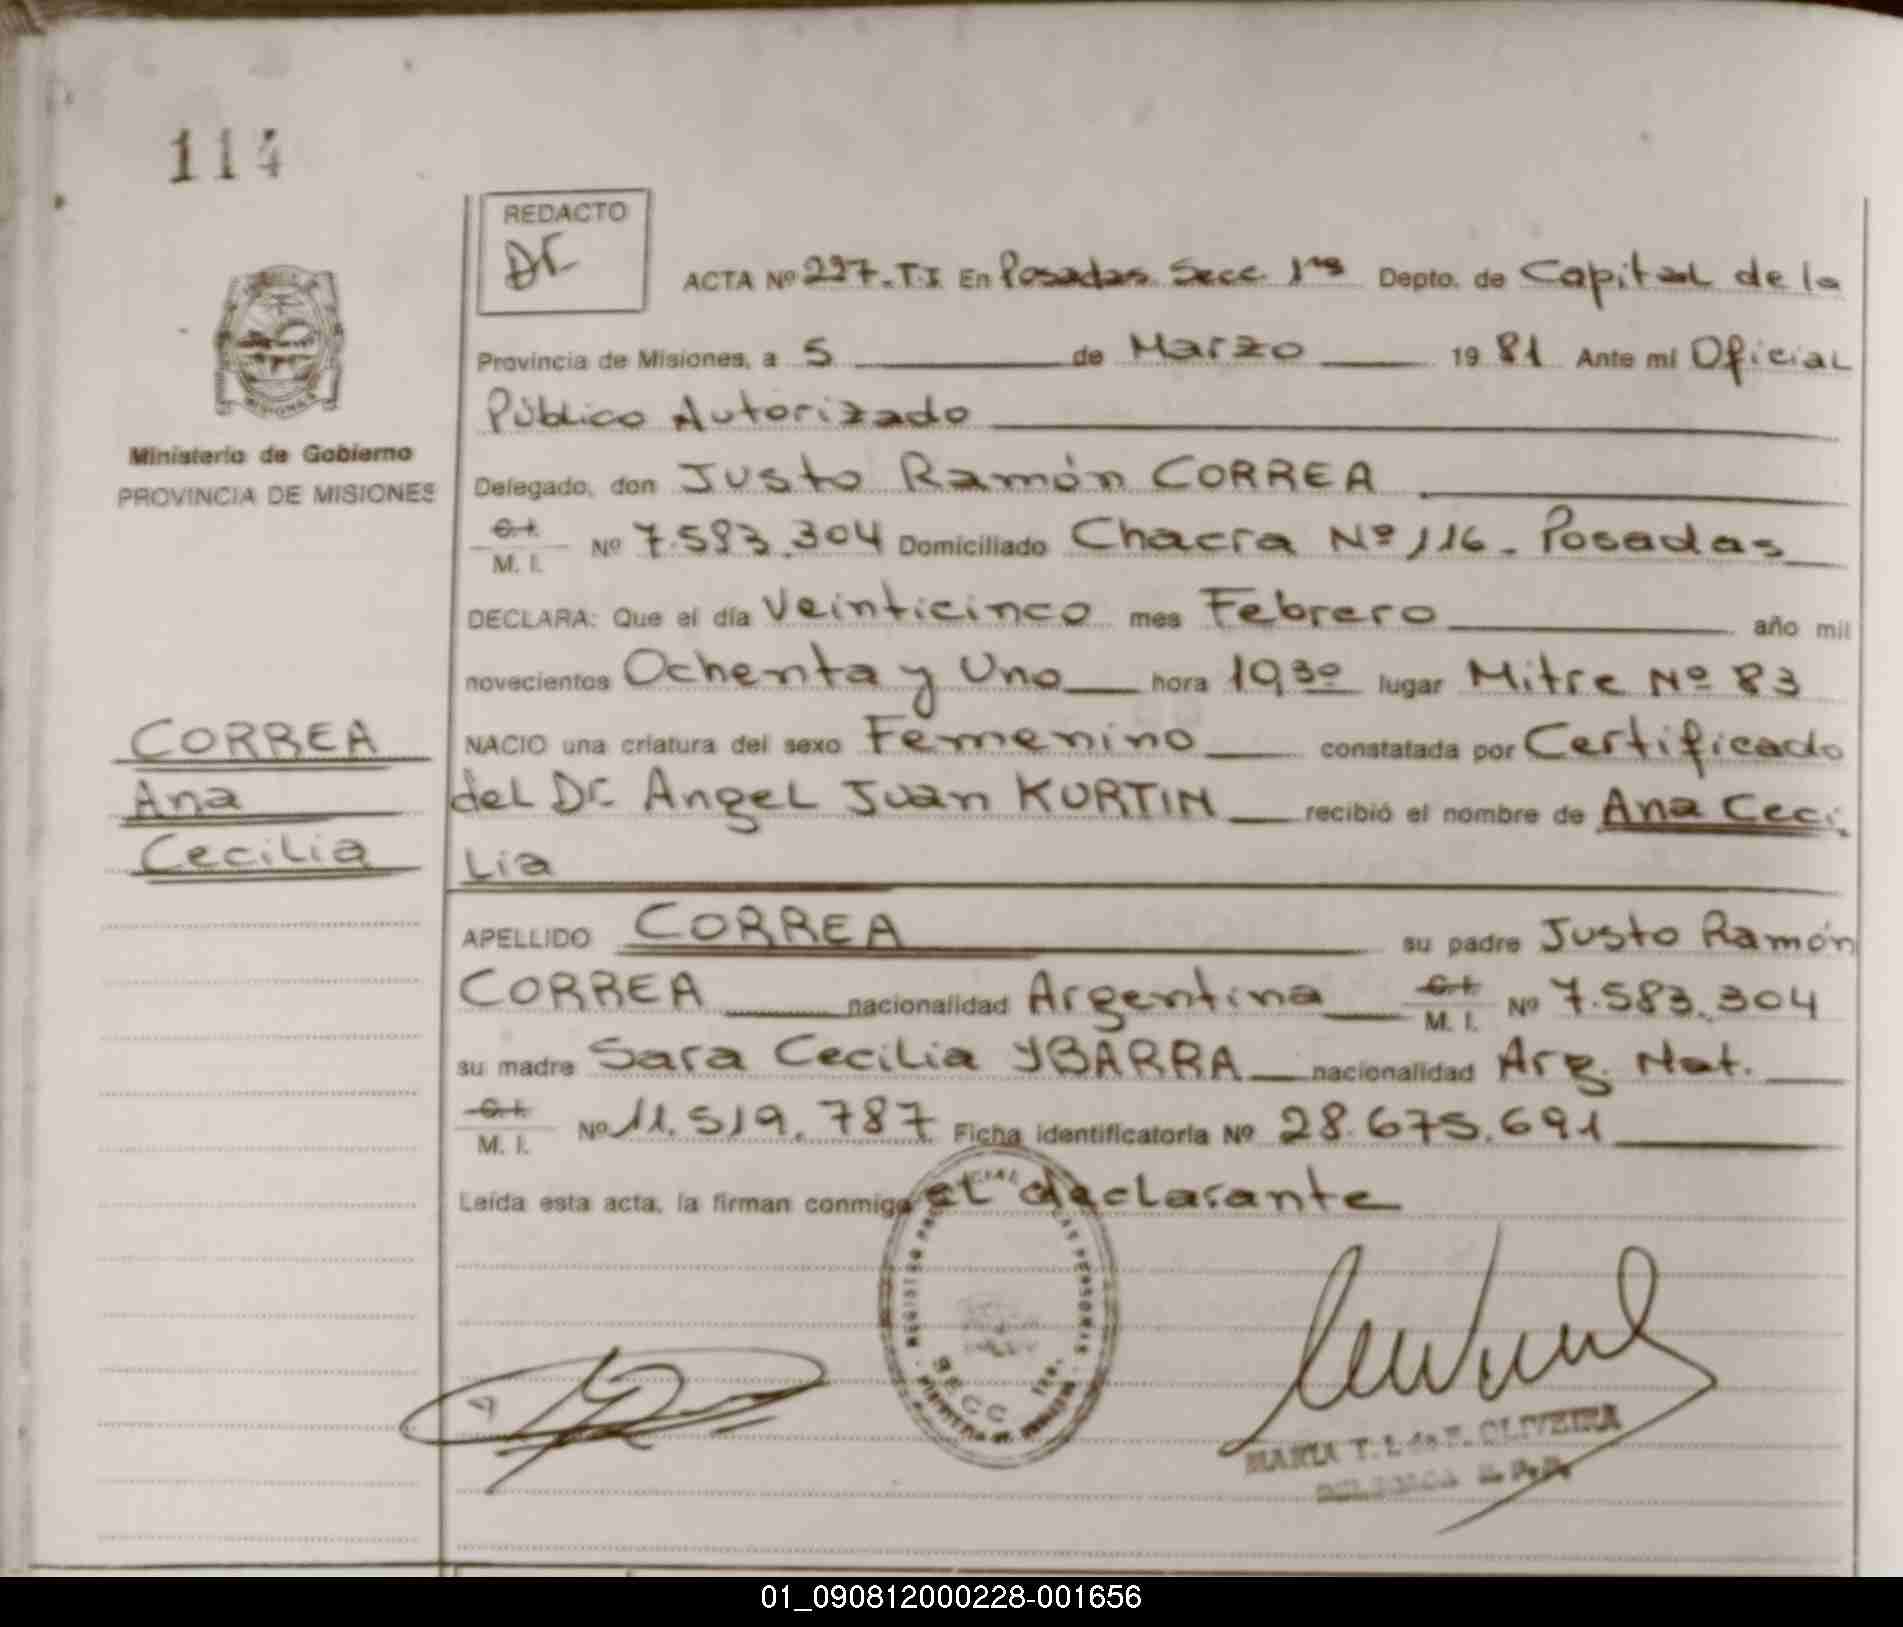 114
REDACTO
ACTA Nº 227. T.I En Posadas. Secc. 1ra Depto. de Capital de la
Provincia de Misiones, a 5 de Marzo 1981 Ante mi Oficial
Público Autorizado
Ministerio de Gobierno
PROVINCIA DE MISIONES
Delegado, don Justo Ramón CORREA
M. I. Nº 7.583.304 Domiciliado Chacra Nº 116. Posadas
DECLARA: Que el día Veinticinco mes Febrero año mil
novecientos Ochenta y Uno hora 19³⁰ lugar Mitre Nº 83
CORREA
Ana
Cecilia
NACIO una criatura del sexo Femenino constatada por Certificado
del Dr. Angel Juan KURTIN recibió el nombre de Ana Ceci-
Lia
APELLIDO CORREA su padre Justo Ramón
CORREA nacionalidad Argentina M. I. Nº 7.583.304
su madre Sara Cecilia YBARRA nacionalidad Arg. Nat.
M. I. Nº 11.519.787 Ficha identificatoria Nº 28.675.691
Leída esta acta, la firman conmigo el declarante
SECC 1ra.
MARIA T. L. de F. OLIVEIRA
01_090812000228-001656